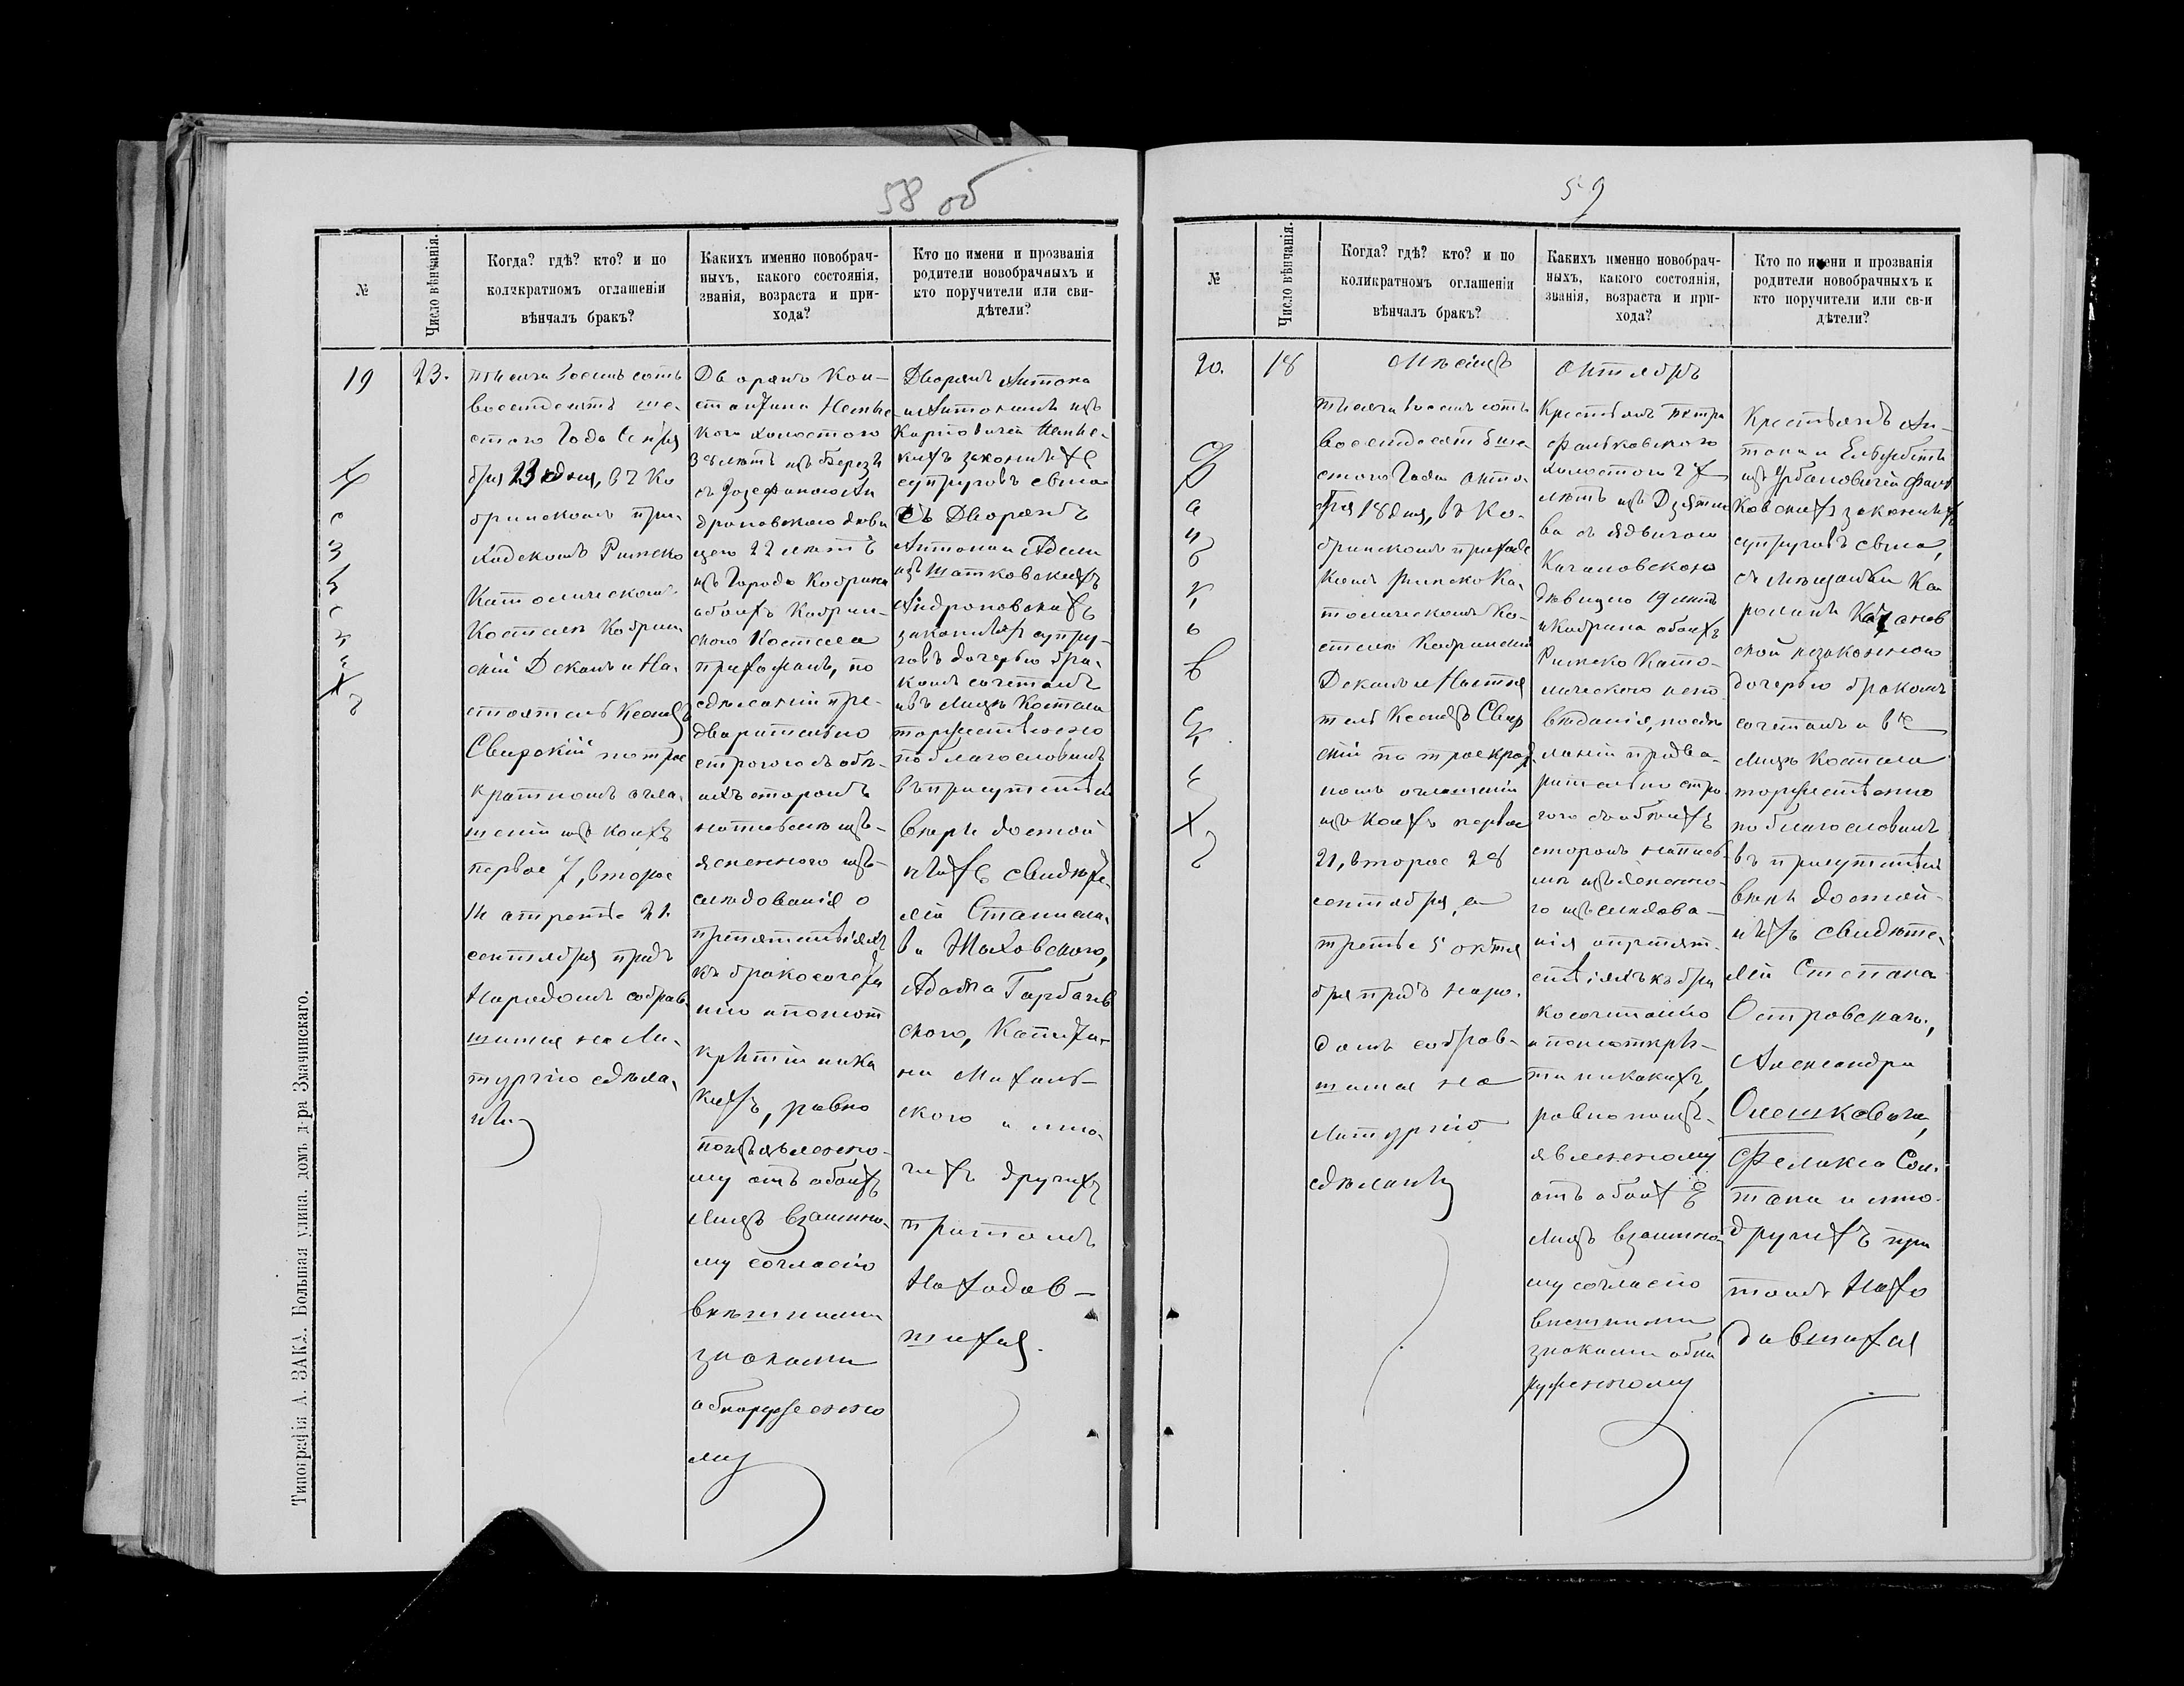 58 об
№
Число вѣнчанія.
Когда? гдѣ? кто? и по
коликратномъ оглашеніи
вѣнчалъ бракъ?
Какихъ именно новобрач-
ныхъ, какого состоянія,
званія, возраста и при-
хода?
Кто по имени и прозванія
родители новобрачныхъ и
кто поручители или сви-
дѣтели?
19
23.
тысяча восемьсотъ
восемдесятъ ше-
стого Года Сентя
бря 23 дня, въ Ко
бринскомъ при-
ходскомъ Римско
Католическомъ
Костелѣ Кобрин-
скій Деканъ и На-
стоятель Ксендзъ
Свирскій по трое
кратномъ огла-
шеніи изъ коихъ
первое 7, второе
14 а третье 21
сентября предъ
Народомъ собрав-
шимся на Ли-
тургію сдѣла-
ны
Дворянъ Кон-
стантина
кого холостого
лѣтъ изъ Березы
съ Іозефиною Ан
дроповскою дѣви
цею 22 лѣтъ
изъ Города Кобрина
обоихъ Кобрин-
ского Костела
прихожанъ, по
сдѣланіи пре-
дварительно
строгого съ обѣ-
ихъ сторонъ
на письмѣ изъ-
ясненного изъ-
слѣдованія о
препятствіяхъ
къ бракосочета
нію и по неот
крытіи ника
кихъ, равно
по изъявленно-
му отъ обоихъ
лицъ взаимно-
му согласію
внѣшними
знаками
обнаруженно
му
Дворянъ Антона
и Антонины изъ
Карповичей
кихъ законныхъ
супруговъ сына
съ Дворянъ
Антона и Адели
изъ Шатковскихъ
Андроповскихъ
законныхъ супру-
говъ дочерью бра-
комъ сочеталъ
и въ лицѣ Костела
торжественно
поблагословилъ
въ присутствіи
вѣры достой
ныхъ свидѣте-
лей Станисла-
ва Жоховского,
Адама Гарбачев
ского,
и мно-
гихъ другихъ
притомъ
Находив-
шихся.
Типографія А. ЗАКА. Большая улица, домъ д-ра Змачинскаго.
59
№
Число вѣнчанія.
Когда? гдѣ? кто? и по
коликратномъ оглашеніи
вѣнчалъ бракъ?
Какихъ именно новобрач-
ныхъ, какого состоянія,
званія, возраста и при-
хода?
Кто по имени и прозванія
родители новобрачныхъ к
кто поручители или св-и
дѣтели?
20.
18
Мѣсяцъ
Октябрь
тысяча восемьсотъ
восемдесятъ ше-
стого Года Октя-
бря 18 дня, въ Ко-
бринскомъ приход
комъ Римско Ка-
толическомъ Ко-
стелѣ Кобринскій
Деканъ и Настоя
тель Ксендзъ Свир
скій по троекрат
номъ оглашеніи
изъ коихъ первое
21, второе 28
сентября, а
третье 5 октя
бря предъ наро-
домъ собрав-
шимся на
Литургію
сдѣланы
Крестьянъ Петра
Фальковского
холостого 27
лѣтъ изъ
ва съ Ядвигою
Качановскою
дѣвицею 19 лѣтъ
изъ Кобрина обоихъ
Римско Като-
лического испо
вѣданія, по сдѣ
ланіи предва-
рительно стро-
гого съ обѣихъ
сторонъ на пись-
мѣ изъясненно-
го изъслѣдова-
нія о препят-
ствіяхъ къ бра
косочетанію
и по неоткры-
тіи никакихъ,
равно по изъ-
явленному
отъ обоихъ
лицъ взаимно-
му согласію
внѣшними
знаками обна
руженному
Крестьянъ Ан-
тона и Елизабеты
изъ Урбановичей Фаль
ковскихъ законныхъ
супруговъ сына,
съ мѣщанки Ка
ролины Качанов
ской незаконною
дочерью бракомъ
сочеталъ и въ
лицѣ Костела
торжественно
поблагословилъ
въ присутствіи
вѣры достой-
ныхъ свидѣте-
лей Степана
Островскаго,
Александра
Олешкевича,
Феликса Сол-
тана и мно-
другихъ при
томъ Нахо
дившихся